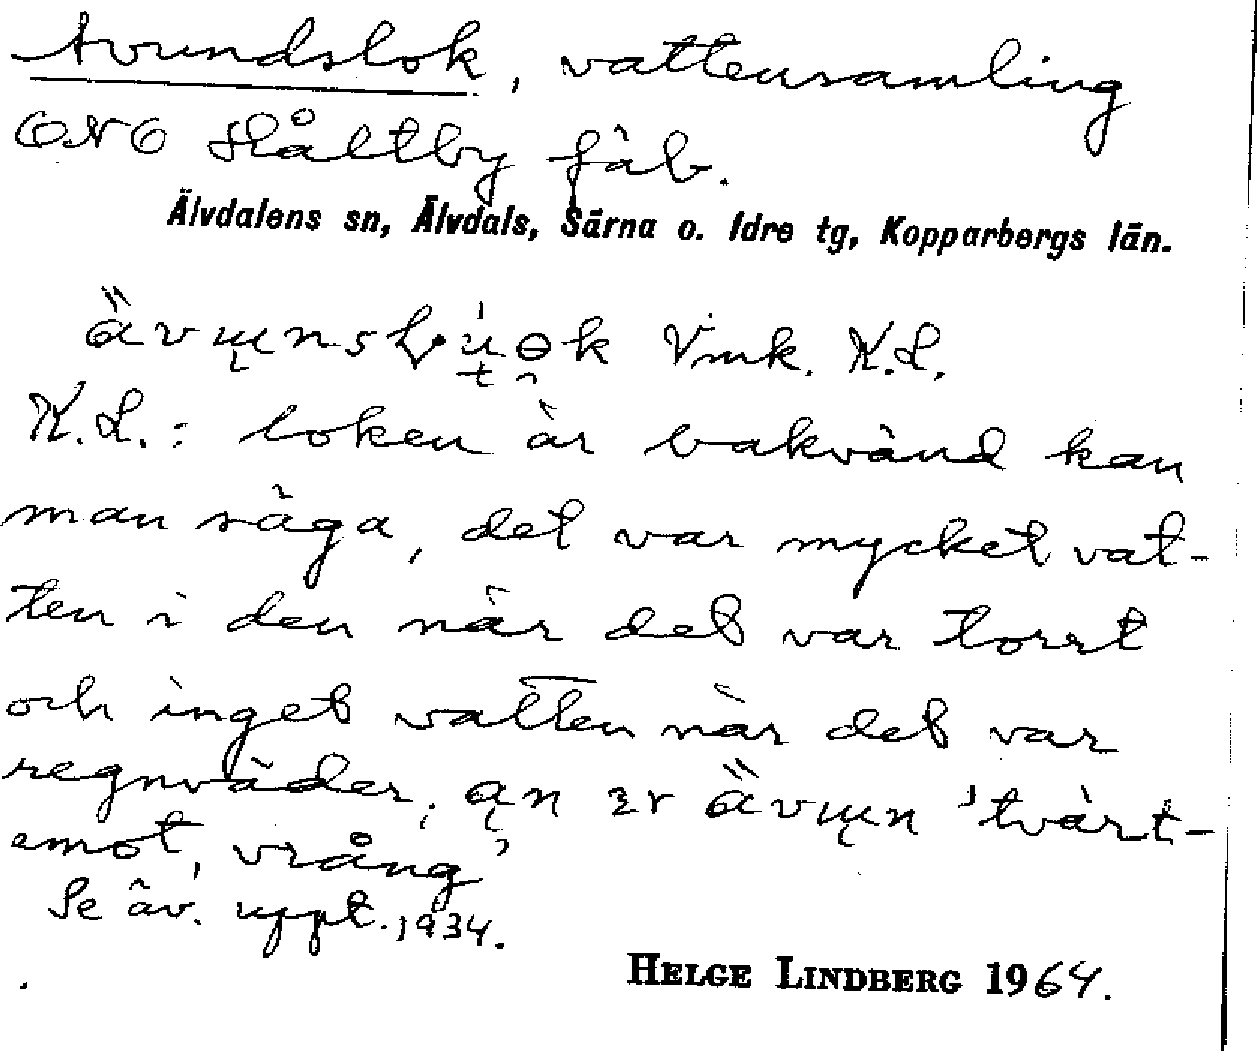 Avundslok, vattensamling
ONO Håltby fäb.
Älvdalens sn, Älvdals, Särna o. Idre tg, Kopparbergs län.
Vmk. K.L.
K.L.: loken är bakvänd kan
man säga, det var mycket vat-
ten i den när det var torrt
och inget vatten när det var
regnväder, 'tvärt-
emot, vrång'
Se äv. uppt. 1934.
HELGE LINDBERG 1964.